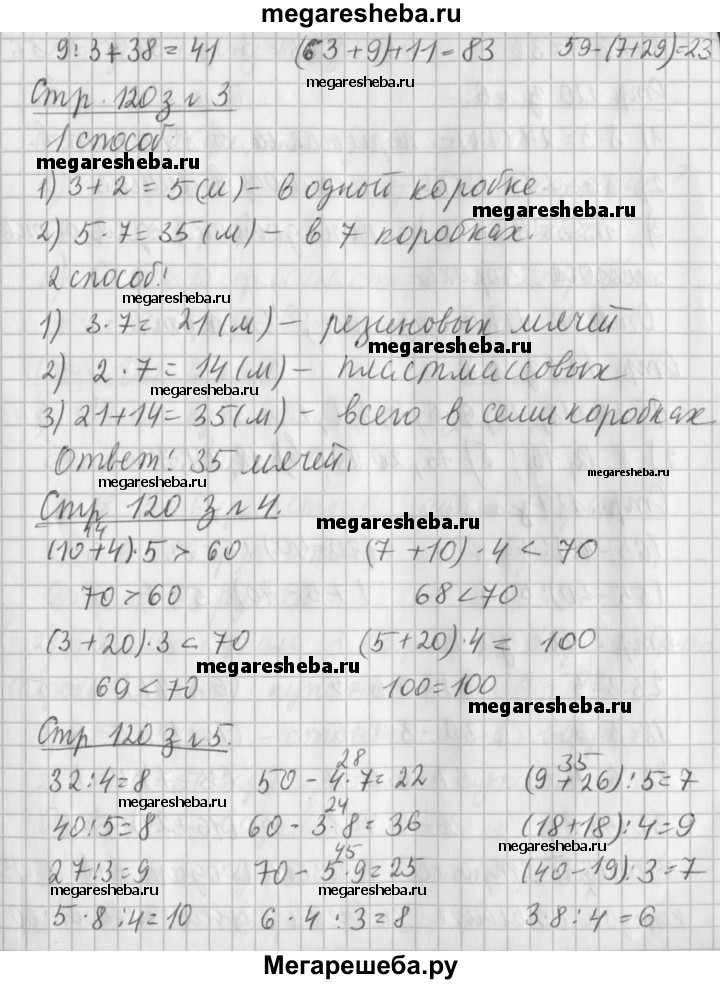 megaresheba.ru
9:3+38=41 (63+9)+11=83 59-(7+29)=23
megaresheba.ru
Стр. 120 з № 3
1 способ:
megaresheba.ru
1) 3+2=5(м) - в одной коробке.
megaresheba.ru
2) 5·7=35(м) - в 7 коробках.
2 способ:
megaresheba.ru
1) 3·7= 21(м) - резиновых мячей
megaresheba.ru
2) 2·7=14(м) - пластмассовых
megaresheba.ru
3) 21+14=35(м) - всего в семи коробках.
Ответ: 35 мячей.
megaresheba.ru megaresheba.ru
Стр 120 з № 4.
megaresheba.ru
14
(10+4)·5 > 60 (7+10)·4 < 70
70>60 68<70
(3+20)·3 < 70 (5+20)·4 = 100
megaresheba.ru
69<70 100=100
megaresheba.ru
Стр 120 з № 5.
28 35
32:4=8 50-4·7=22 (9+26):5=7
megaresheba.ru
24
40:5=8 60-3·8=36 (18+18):4=9
megaresheba.ru
45
27:3=9 70-5·9=25 (40-19):3=7
megaresheba.ru megaresheba.ru megaresheba.ru
5·8:4=10 6·4:3=8 3·8:4=6
Мегарешеба.ру